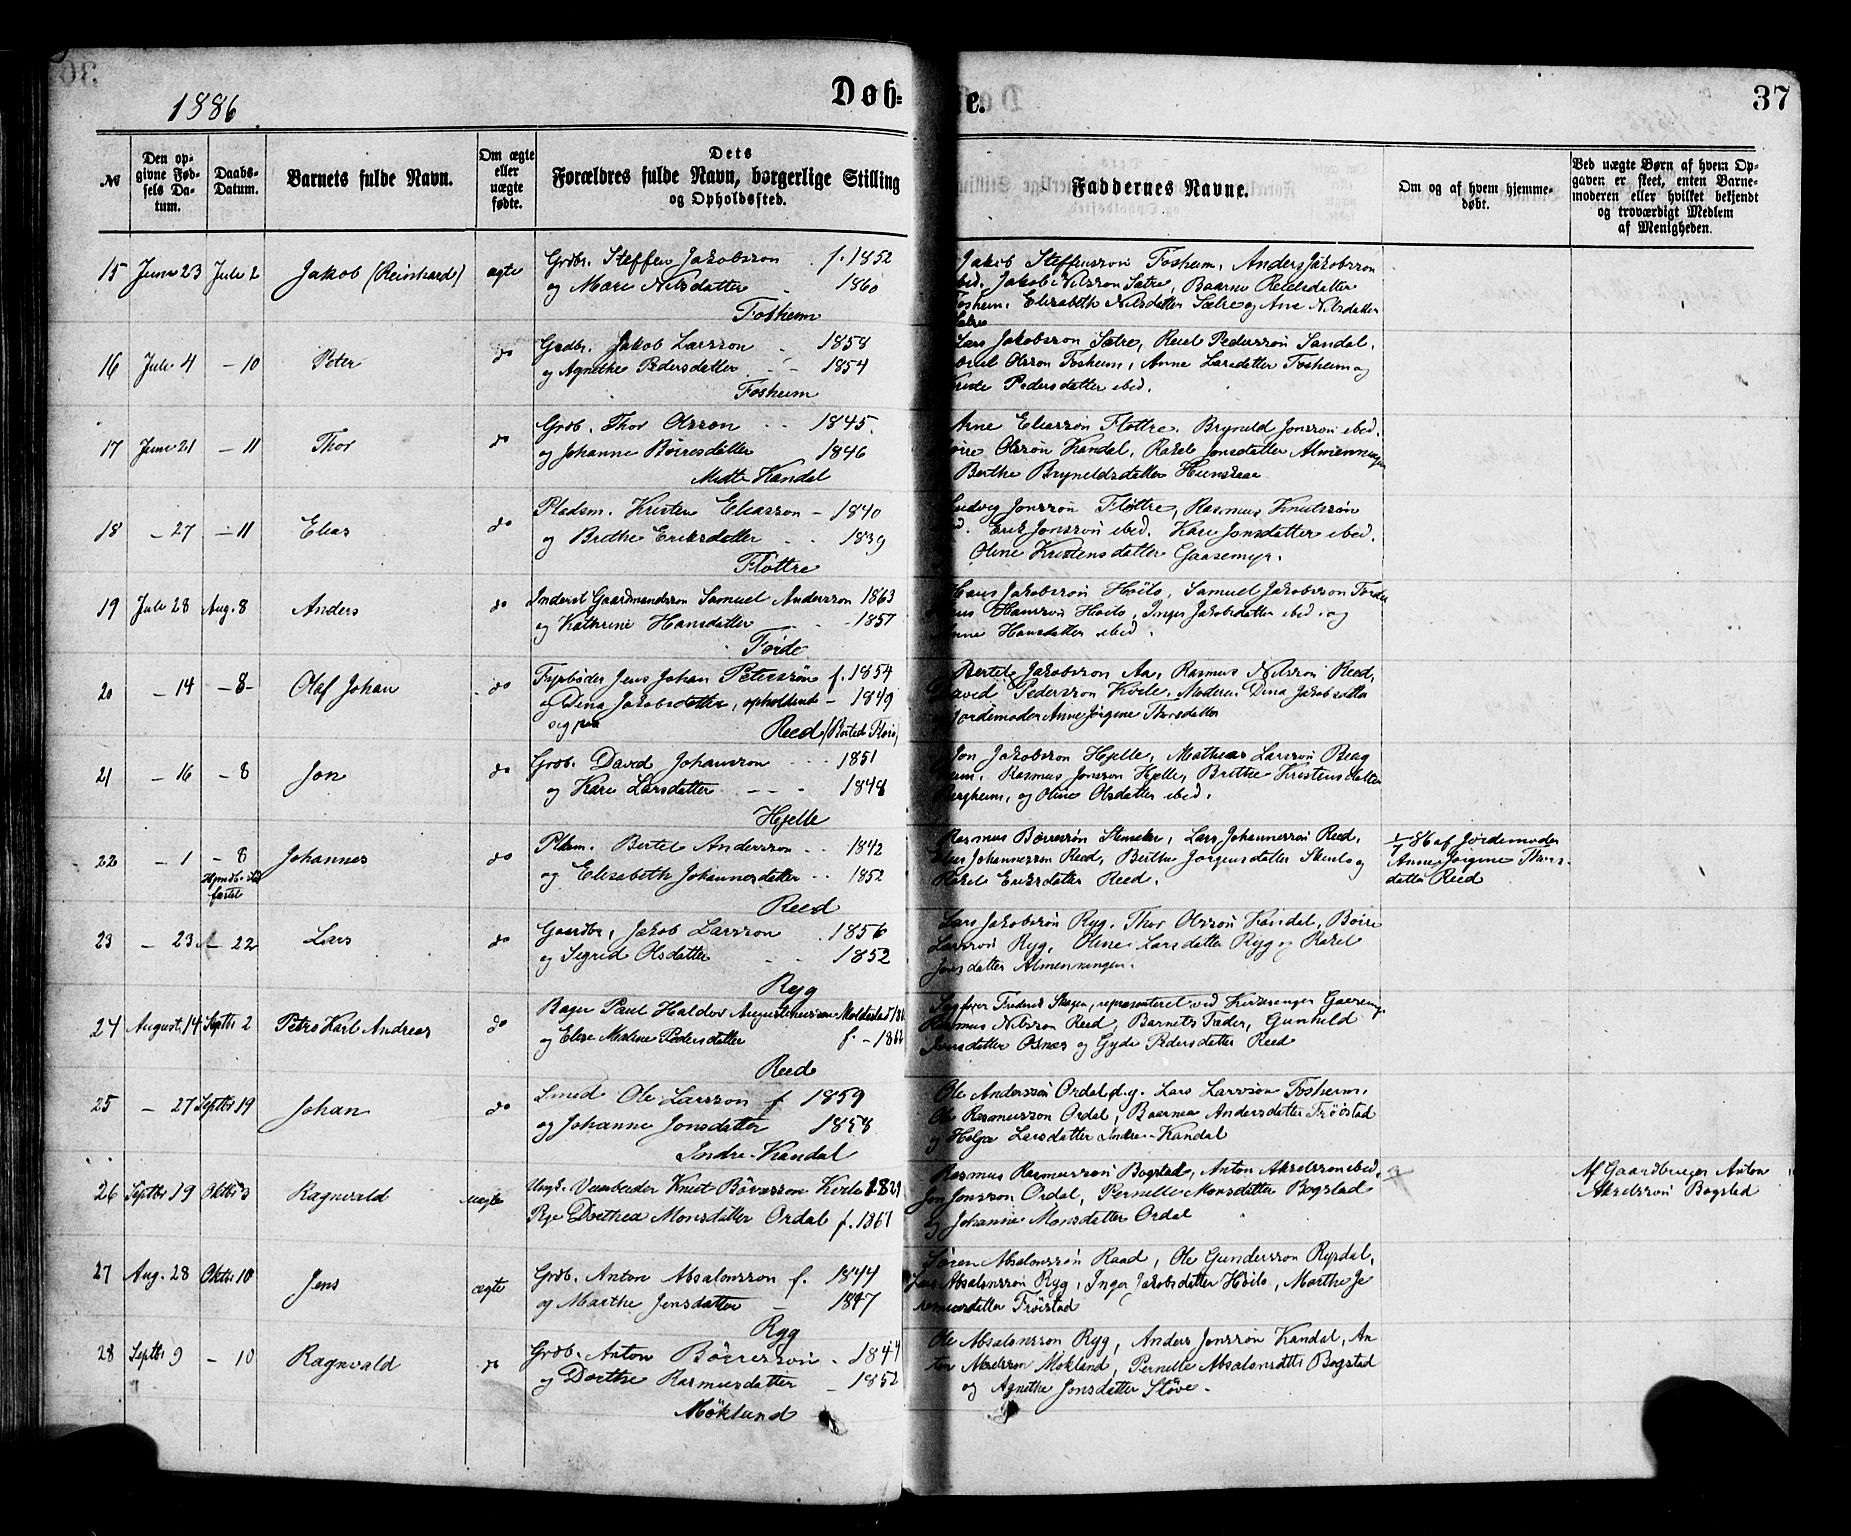 1886
Døb=
te.
37
№
Den op-
givne Fød-
sels Da-
tum.
Daabs-
Datum.
Barnets fulde Navn.
Om ægte
eller
uægte
fødte.
Dets
Forældres fulde Navn, borgerlige Stilling
og Opholdssted.
Faddernes Navne.
Om og af hvem hjemme-
døbt.
Ved uægte Børn af hvem Op-
gaven er skeet, enten Barne-
moderen eller hvilket bekjendt
og troværdigt Medlem
af Menigheden.
15 Juni 23 Juli 2 Jakob (Reinhardt) ægte Grdbr. Steffen Jakobsson f. 1852
og Mari Nilsdatter 1860
Fosheim
Jakob Steffensson Fosheim, Anders Jakobsson
ibid. Jakob Nilsson Sætre, Baarne Reielsdatter
Fosheim, Elisabeth Nilsdatter Sætre og Ane Nilsdatter
Sætre
16 Juli 4 - 10 Peter do Grdbr. Jakob Larsson - 1858
og Agnethe Pedersdatter - 1854
Fosheim
Lars Jakobsson Sætre, Reiel Pedersson Sandal,
Olsson Fosheim, Anne Larsdatter Fosheim og
Pedersdatter ibid.
17 Juni 21 - 11 Thor do Grdb. Thor Olsson - - 1845.
og Johanne Børresdatter 1846
Midt-Kandal
Arne Eliasson Fløttre, Bryneld Jonsson ibid.
Børre Olsson Kandal, Rakel Jonsdatter Almenningen
Berthe Bryneldsdatter
18 - 27 - 11 Elias do Pladsm. Kristen Eliasson - 1840
og Brethe Eriksdatter - - 1839
Fløttre
Ludvig Jonsson Fløttre, Rasmus Knutsson
ibid. Erik Jonsson ibid. Kari Jonsdatter ibid.
Oline Kristensdatter Gaasemyr.
19 Juli 28 Aug. 8 Anders do Inderst Gaardmandssøn Samuel Andersson 1863
og Kathrine Hansdatter - - 1857
Førde
Hans Jakobsson Høilo, Samuel Jakobsson Førde
Hansson Høilo, Inger Jakobsdatter ibid. og
Anne Hansdatter ibid.
20 - 14 - 8 - Olaf Johan do Fyrbøder Jens Johan Peterssøn f. 1854
og Dina Jakobsdatter, opholdende - 1849
sig paa
Reed (Bosted: Florø)
Bertel Jakobsson Aa, Rasmus Nilsson Reed,
David Pedersson Kvile, Moderen Dina Jakobsdatter
og Jordemoder Anne Jørgine Thorsdatter
21 - 16 - 8 Jon do Grdb. David Johansson - - - 1851
og Kari Larsdatter - - - 1848
Hjelle
Jon Jakobsson Hjelle, Mathias Larsson Berg
heim, Rasmus Jonsson Hjelle, Brethe Kristensdatter
Bergheim, og Oline Olsdatter ibid.
22 - 1 - 8 Johannes do Pldsm. Bertel Andersson - - 1842
og Elisabeth Johannesdatter - - 1852
Reed
Rasmus Børresson, Lars Johannesson Reed,
Elias Johannesson Reed, Berthe Jørgensdatter og
Rakel Eriksdatter Reed.
1/7 86 af Jordemoder
Anne Jørgine Thors-
datter Reed
23 - 23 A - 22 Lars do Gaardbr. Jakob Larsson . 1856
og Sigrid Olsdatter - - 1852
Ryg
Lars Jakobsson Ryg, Thor Olsson Kandal, Børre
Larsson Ryg, Oline Larsdatter Ryg og Rakel
Jonsdatter Almenningen.
24 August 14 Septbr 2 Petro Karl Andreas do Bager Paul Haldor Augustinussøn Moldestad
og Elise Maline Pedersdatter f. -
Reed
Sagfører Frederik, repræsenteret ved Kirkesanger Gaasemyr
Rasmus Nilsson Reed, Barnets Fader, Gunhild
Iversdatter Osnæs og Gyda Pedersdatter Reed
25 - 27 Septbr 19 Johan do Smed Ole Larsson f 1859
og Johanne Jonsdatter 1858
Indre-Kandal
Ole Andersson Ordal d.y. Lars Larsson Fosheim,
Ole Rasmusson Ordal, Baarnea Andersdatter Frøistad
og Helga Larsdatter Indre-Kandal
26 Septbr 19 Oktbr 3 Ragnvald uægte Ungk. Veiarbeider Knut Børresson Kvile 1829
Pge Dorthea Monsdatter Ordal f. 1861
Rasmus Rasmusson Bogstad, Anton Akselsson ibid,
Jon Jonsson Ordal, Pernelle Monsdatter Bogstad
og Johanne Monsdatter Ordal
Af Gaardbruger Anton
Akselsson Bogstad
27 Aug. 28 Oktbr 10 Jens ægte Grdb. Anton Absalonsson f. 1844
og Marthe Jensdatter - 1847
Ryg
Søren Absalonsson Raad, Ole Gundersson Rysdal,
Lars Absalonsson Ryg, Inger Jakobsdatter Høilo, Marthe Je
remiasdatter Frøistad
28 Septbr 9 - 10 Ragnvald do Grdb. Anton Børresson - 1844
og Dorthe Rasmusdatter - 1852
Møkland
Ole Absalonsson Ryg, Anders Jonsson Kandal, An
ton Akselsson Mokland, Pernelle Absalonsdatter Bogstad
og Agnethe Jonsdatter Støve.